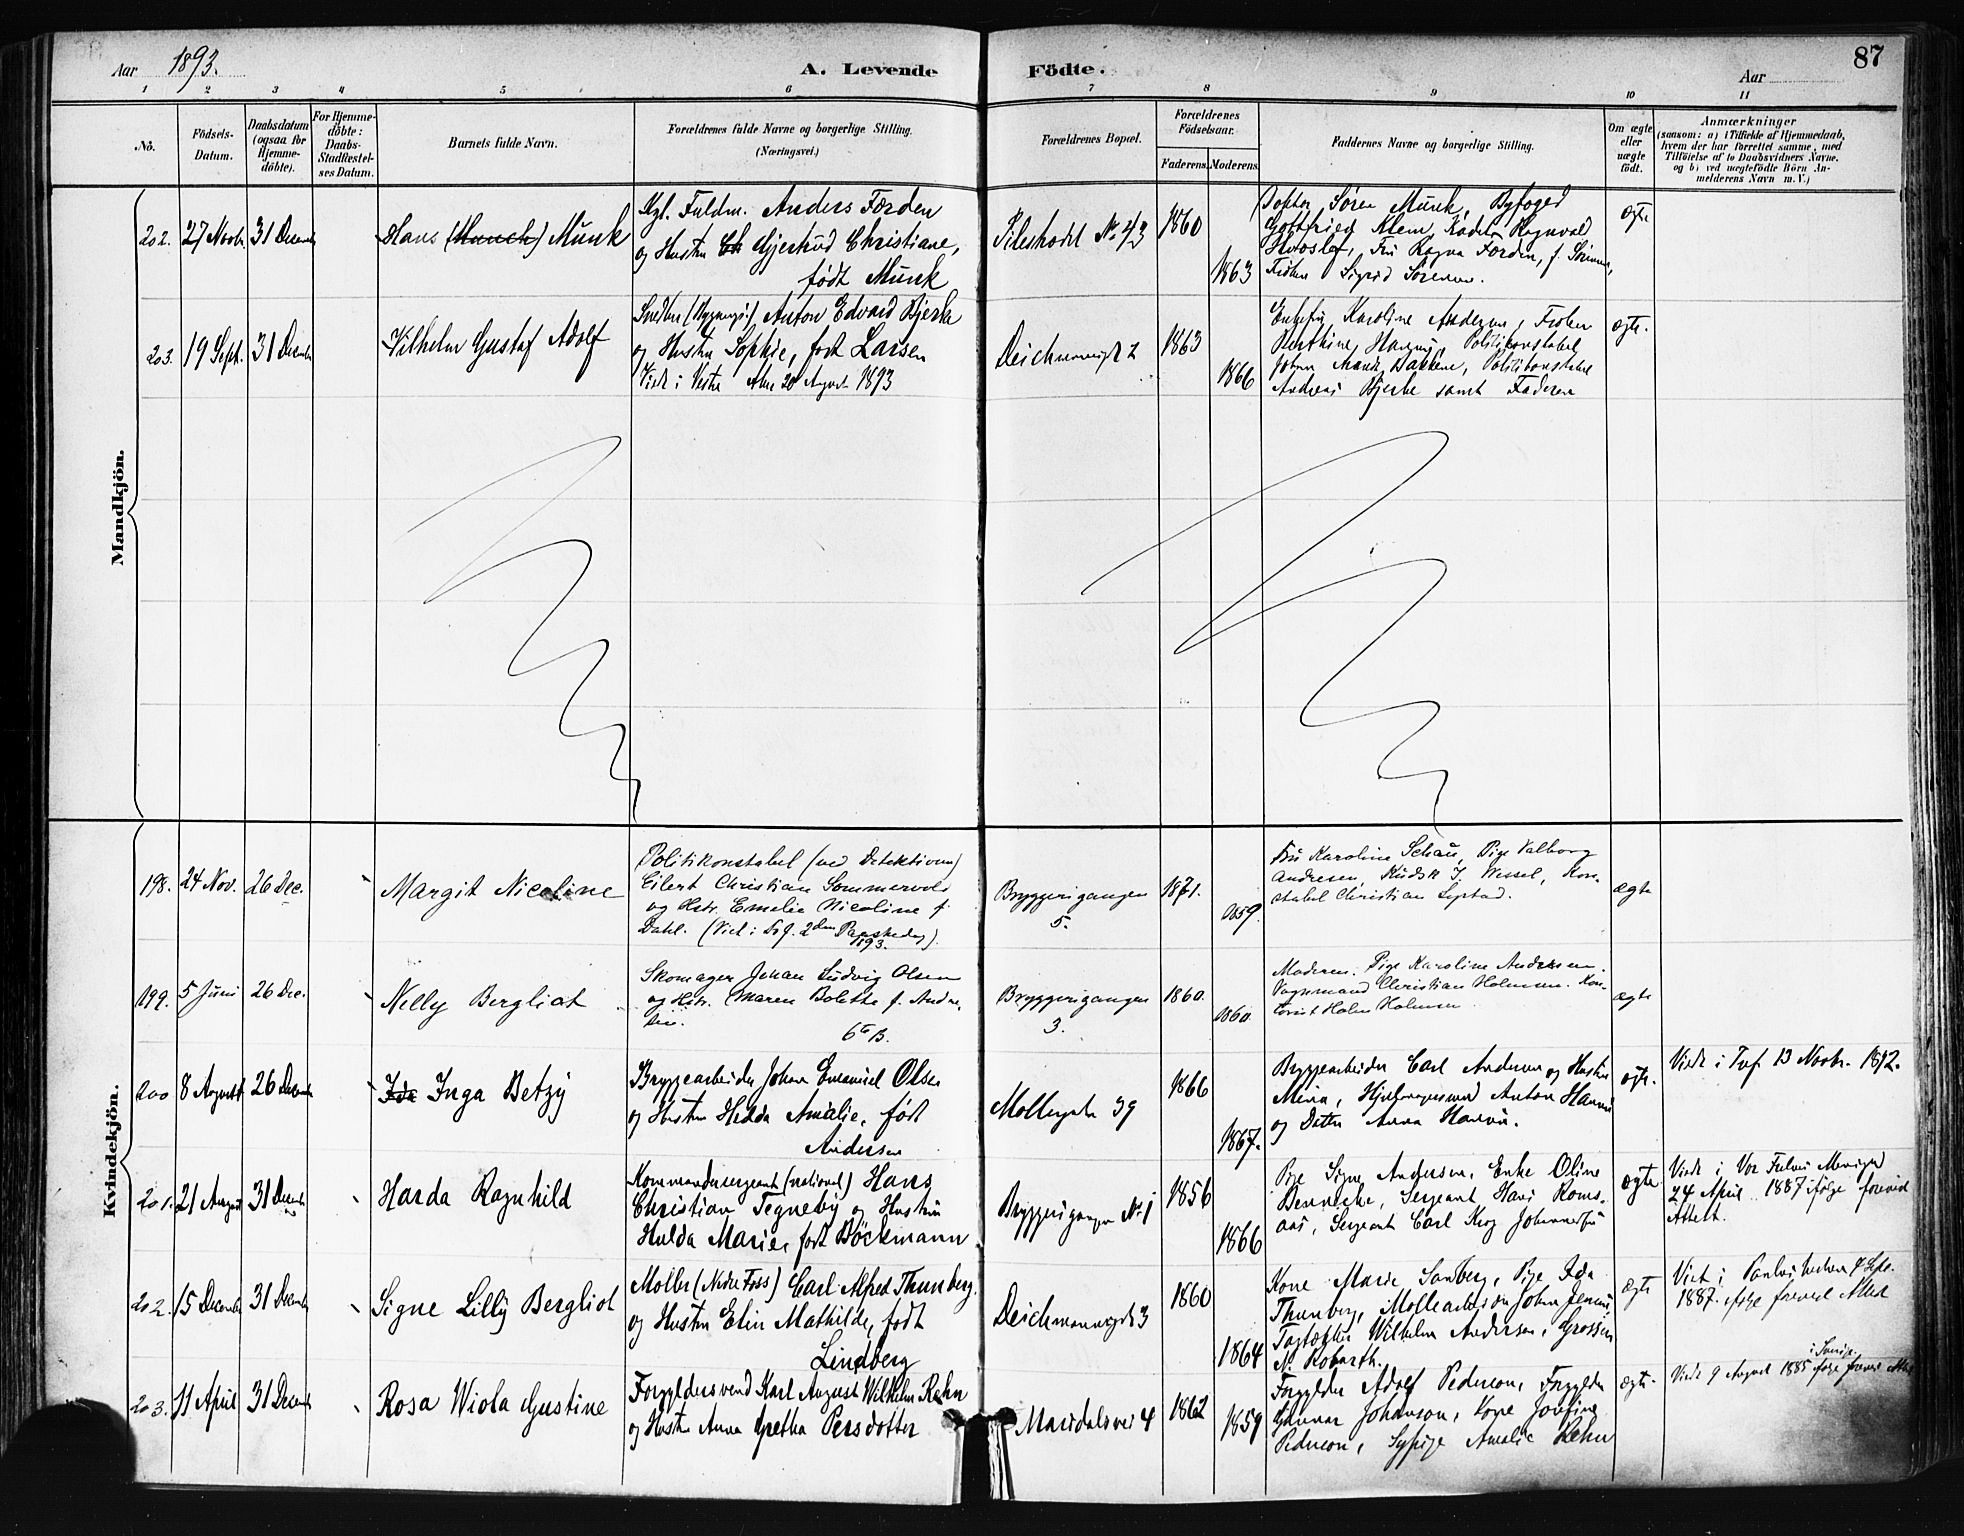 87
Aar 1893.
A. Levende Födte.
Aar
1 2 3 4 5 6 7 8 9 10 11
No.
Födsels-Datum.
Daabsdatum (ogsaa for Hjemme-döbte).
For Hjemme-döbte: Daabs-Stadfæstel-ses Datum.
Barnets fulde Navn.
Forældrenes fulde Navne og borgerlige Stilling.
(Næringsvei.)
Forældrenes Bopæl.
Forældrenes Födselsaar.
Faderens. Moderens.
Faddernes Navne og borgerlige Stilling.
Om ægte eller uægte födt.
Anmærkninger
(saasom: a) i Tilfælde af Hjemmedaab,
hvem der har forrettet samme, med
Tilföielse af to Daabsvidners Navne,
og b) ved uægtefödte Börn An-
melderens Navn m.V.)
Mandkjön.
202. 27 Novbr. 31 Decemb
Hans (Munch) Munk
Kgl. Fuldm. Anders Førden
og Hustru Ch Gjertrud Christiane,
født Munk
Pilestrædet No 43
1860
1863
Doktor Søren Munk, Byfoged
Gottfried Klem, Ragnvald
Fru Ragna Førden, f. Sørensen,
Frøken Sigrid Sørensen.
ægte
203. 19 Sept. 31 Decemb
Vilhelm Gustaf Adolf
Anton Edvard Bjerke
og Hustru Sophie, født Larsen
Viet i Vestre Aker 20 August 1893
1863
1866
Karoline Andersen, Frøken
Politikonstabel
Johan Bakken, Politikonstabel
Andreas Bjerke samt Faderen
ægte.
Kvindekjön.
198. 24 Nov. 26 Dec.
Margit Nicoline
Politikonstabel (ved Detektiven)
Eilert Christian Sommervold
og Hstr. Emelie Nicoline f.
Dahl. (Viet i 2den Paaskedag)
1893.
Bryggerigangen
5.
1871.
1859.
Fru Karoline Schau, Pige Valborg
Andresen, Kudsk J. Wessel, Kon-
stabel Christian Systad.
ægte
199. 5 Juni 26 Dec.
Nelly Bergliot
Skomager Johan Ludvig Olsen
og Hstr. Maren Bolette f. Andre-
sen.
6te B.
Bryggerigangen
3.
1860.
1860
Moderen. Pige Karoline Andresen.
Vognmand Christian Holmsen. Kon-
torist Holm Holmsen
ægte
200 8 August 26 Decemb
Ida Inga Betzy
Bryggearbeider Johan Emanuel Olsen
og Hustru Hedda Amalie, født
Andersen
Møllergaden 39
1866
1867.
Bryggearbeider Carl Andersen og Hustru
Mina, Anton
og Datter Anna
ægte.
Viede i 13 Novbr. 1892.
201. 21 August 31 Decemb
Harda Ragnhild
Kommandersergeant (national) Hans
Christian Tegneby og Hustru
Hulda Marie, født Böckmann
Bryggerigangen No 1
1856
1866
Pige Signe Andersen, Enke Oline
Sergeant Roms-
aas, Sergeant Carl Krog
ægte
Viede i Vor Frelsers Menighed
24 April 1887 ifølge forevist
Attest.
202. 15 Decemb 31 Decemb
Signe Lilly Bergliot
Møller (Nedre Foss) Carl Alfred Thunberg
og Hustru Elin Mathilde, født
Lindberg
Deichmannsgd 3
1860
1864
Kone Marie Sandberg, Pige Ida
Thunberg, Møllearbeider Johan
Wilhelm Andersen, Grosserer
N. Robarth.
ægte
Viet i Paulus kirken 4 Septr.
1887. ifølge forevist Attest
203. 11 April 31 Decemb
Rosa Wiola Gustine
Forgyldersvend Karl August Wilhelm Rehn
og Hustru Anna Gretha Persdotter
Maridalsvei 4
1862
1859
Forgylder Adolf Pederson, Forgylder
Gunnar Johanson, Kone Josefine
Pederson, Sypige Amalie Rehn
ægte.
i Sverige
Viede 9 August 1885 ifølge forevist Attest